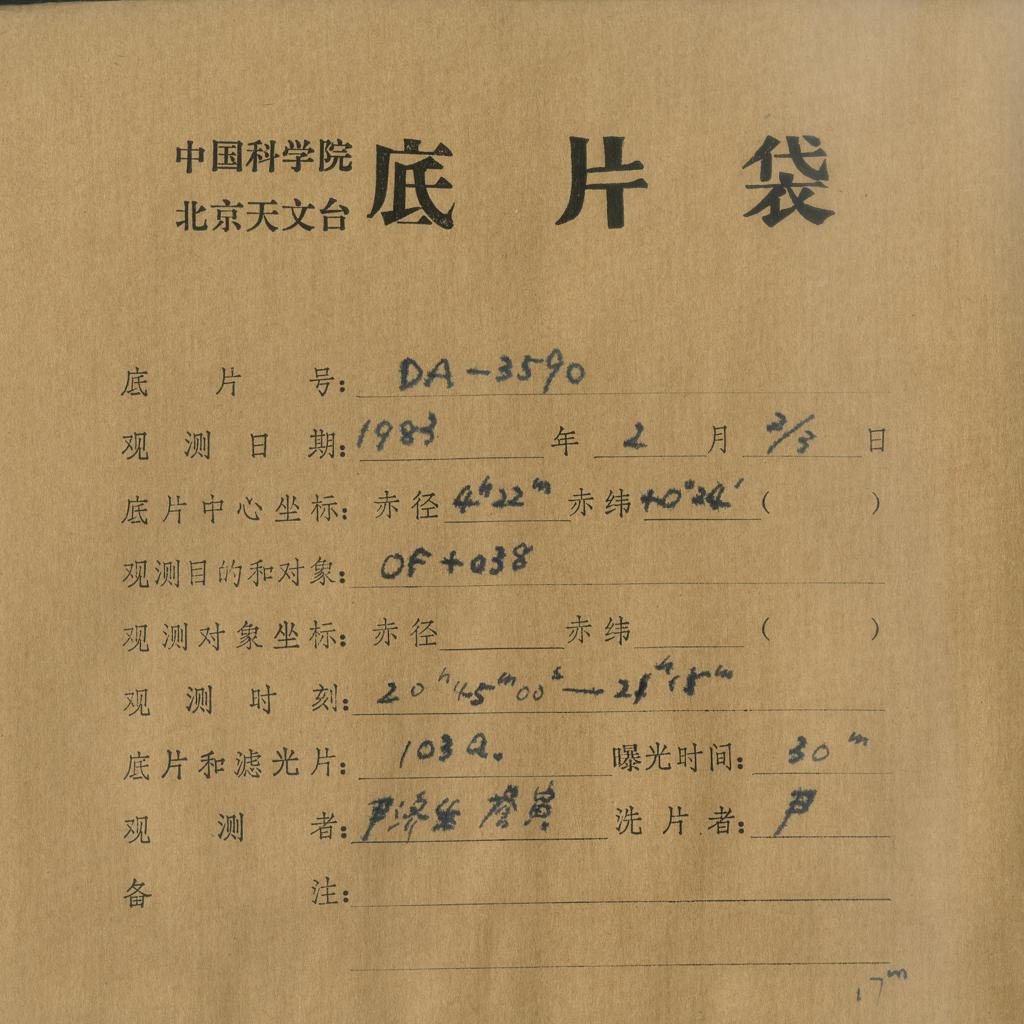 中国科学院
北京天文台
底片袋
底片号: DA-3590
观测日期: 1983年2月2/3日
底片中心坐标: 赤径 4h22m 赤纬 +0°24′ ( )
观测目的和对象: OF+038
观测对象坐标: 赤径 赤纬 ( )
观测时刻: 20h45m00s—21h15m
底片和滤光片: 103a. 曝光时间: 30m
观测者: 尹济生 洗片者: 尹
备注:
17m